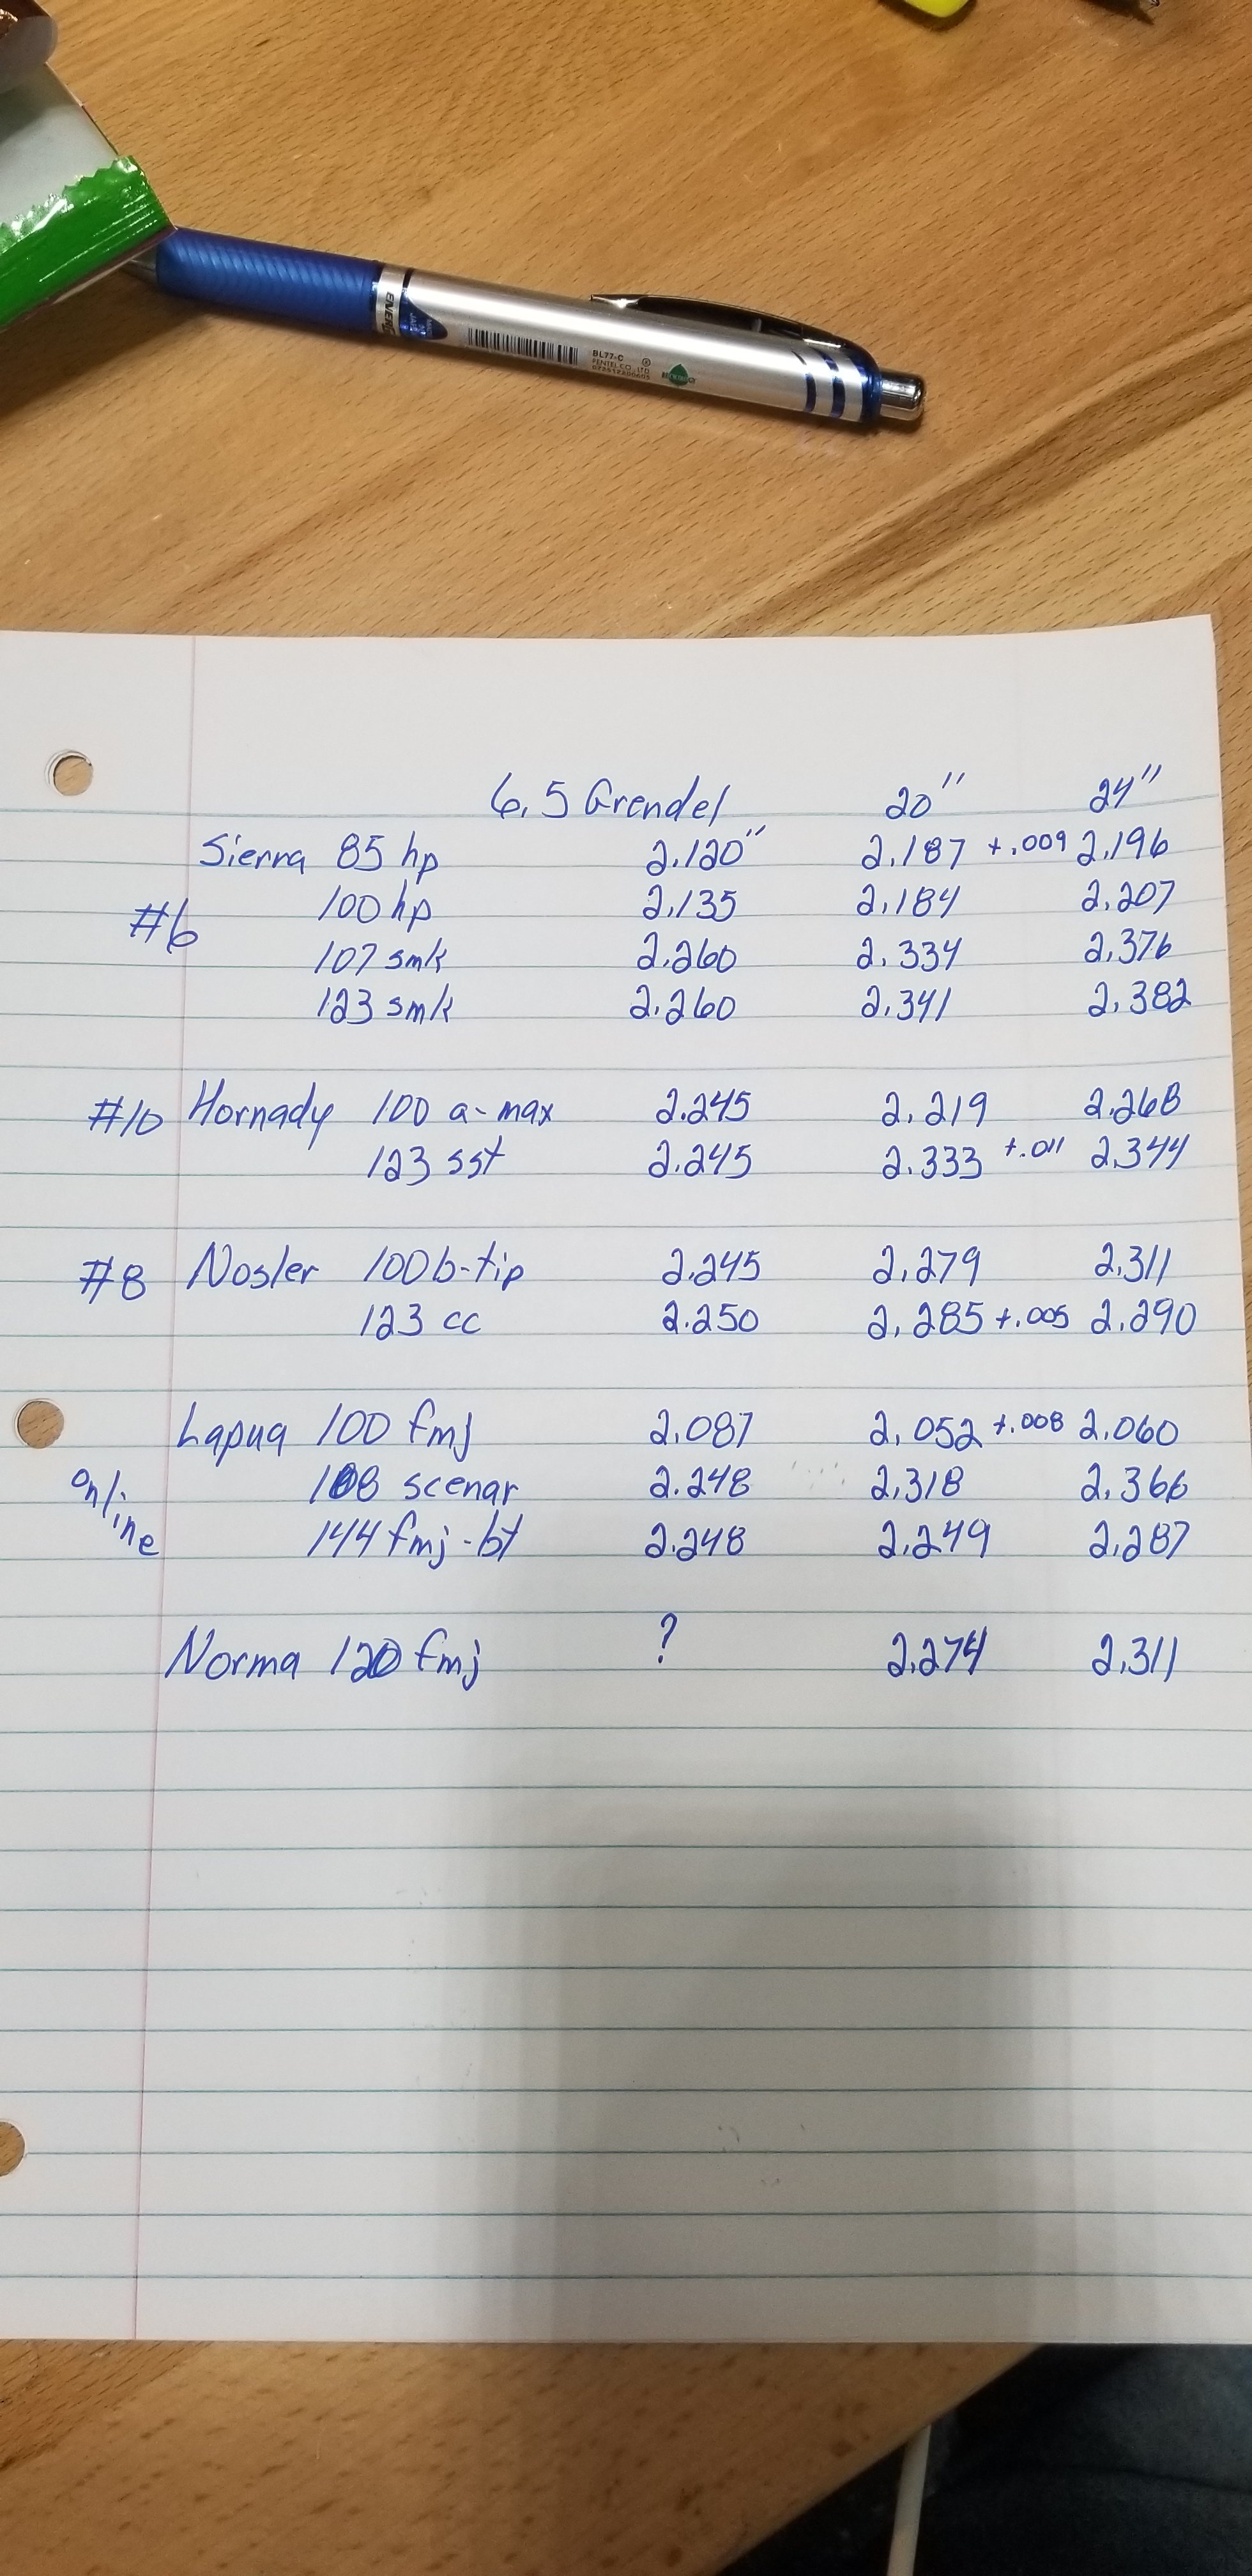 ENER
BL77-C
PENTEL CO., LTD
6.5 Grendel 20" 24"
Sierra 85 hp 2.120" 2.187 +.009 2.196
#6 100 hp 2.135 2.184 2.207
107 smk 2.260 2.334 2.376
123 smk 2.260 2.341 2.382
#10 Hornady 100 a-max 2.245 2.219 2.268
123 sst 2.245 2.333 +.011 2.344
#8 Nosler 100 b-tip 2.245 2.279 2.311
123 cc 2.250 2.285 +.005 2.290
Lapua 100 fmj 2.087 2.052 +.008 2.060
online 108 scenar 2.248 2.318 2.366
144 fmj-bt 2.248 2.249 2.287
Norma 120 fmj ? 2.274 2.311